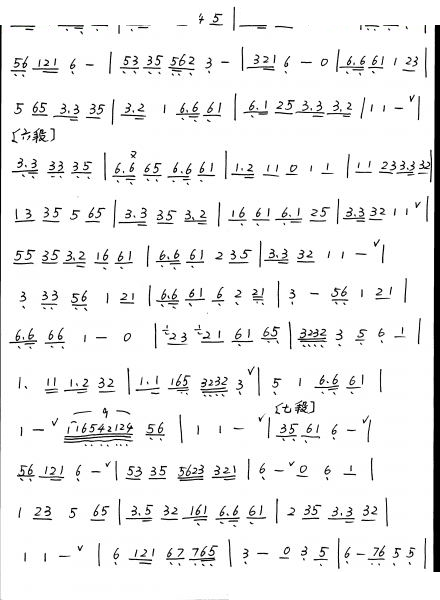 4 5 |
56 121 6 – | 53 35 562 3 – | 321 6 – 0 | 6.6 61 1 23 |
5 65 3.3 35 | 3.2 1 6.6 61 | 6.1 25 3.3 3.2 | 1 1 – ∨ |
〔六段〕
3.3 33 35 | 6.6 65 6.6 61 | 1.2 11 0 1 1 | 11 23 3.3 32 |
13 35 5 65 | 3.3 35 3.2 | 16 61 6.1 25 | 3.3 32 1 1 ∨ |
55 35 3.2 16 61 | 6.6 61 2 35 | 3.3 32 1 1 – ∨ |
3 33 56 1 21 | 6.6 61 6 2 21 | 3 – 56 1 21 |
6.6 66 1 – 0 | 23 21 61 65 | 3232 3 5 6 1 |
1、 11 1.2 32 | 1.1 165 3232 3 ∨ | 5 1 6.6 61 |
〔七段〕
1 – ∨ 116542124 56 | 1 1 – ∨ | 35 61 6 – ∨ |
56 121 6 – ∨ | 53 35 5623 321 | 6 – ∨ 0 6 1 |
1 23 5 65 | 3.5 32 161 6.6 61 | 2 35 3.3 32 |
1 1 – ∨ | 6 121 67 765 | 3 – 0 3 5 | 6 – 76 5 5 |